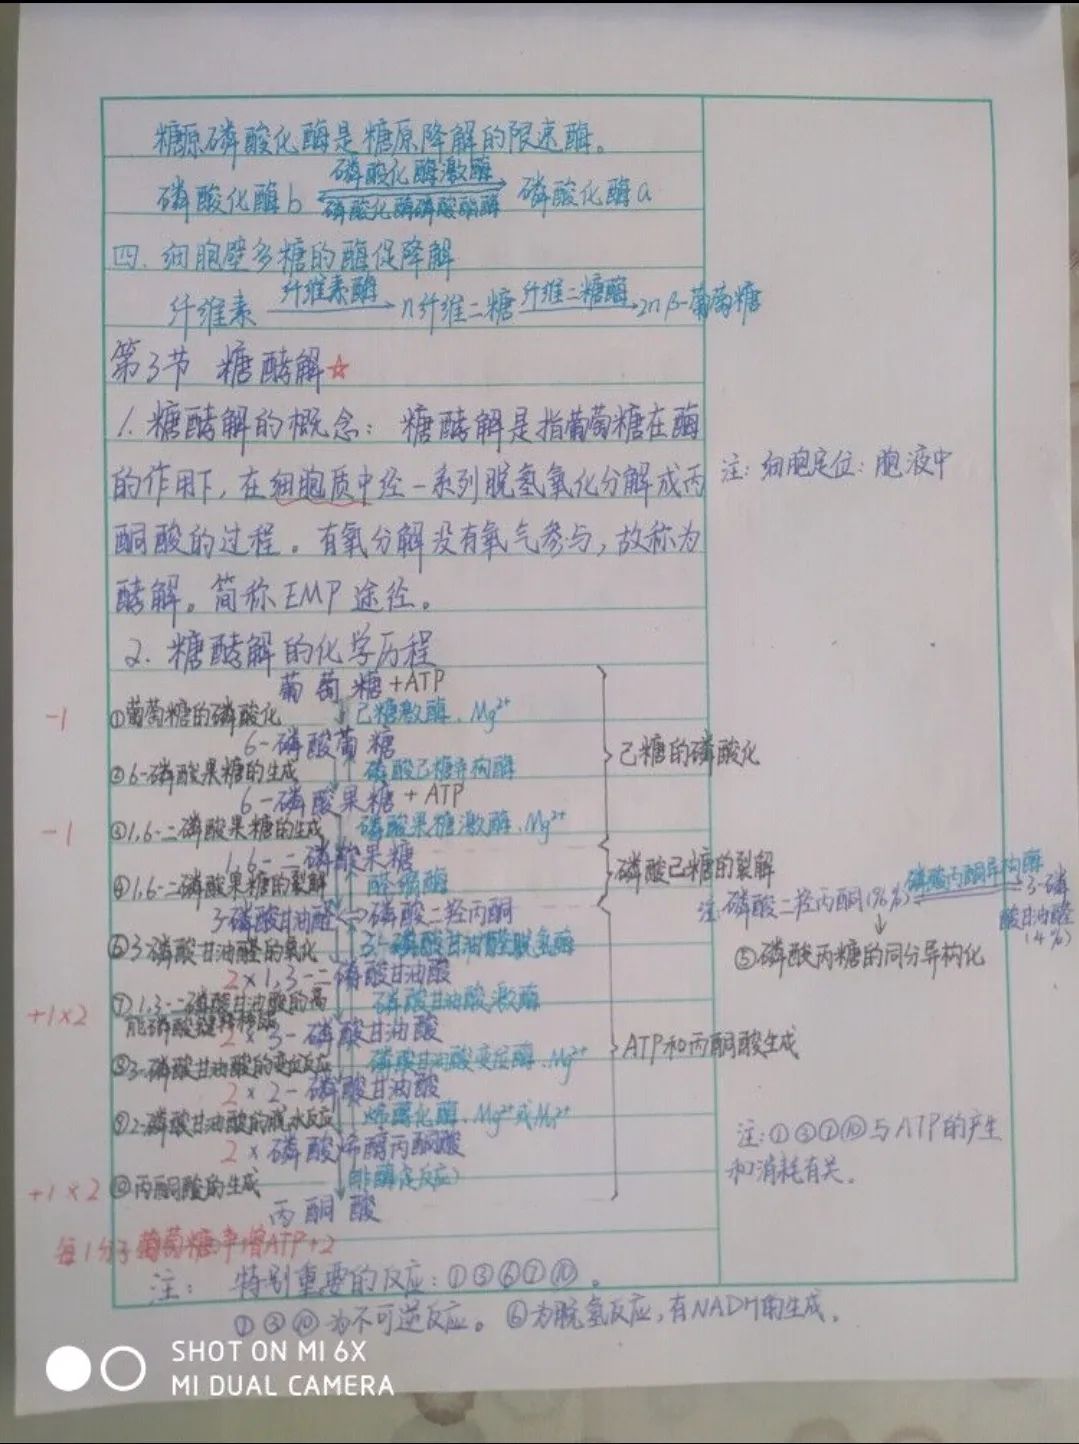 糖原磷酸化酶是糖原降解的限速酶。
磷酸化酶激酶
磷酸化酶b 磷酸化酶a
磷酸化酶磷酸酯酶
四. 细胞壁多糖的酶促降解
纤维素 纤维素酶 n纤维二糖 纤维二糖酶 2nβ-葡萄糖
第3节 糖酵解☆
1. 糖酵解的概念: 糖酵解是指葡萄糖在酶
的作用下,在细胞质中经一系列脱氢氧化分解成丙
酮酸的过程。有氧分解没有氧气参与,故称为
酵解。简称EMP途径。
注: 细胞定位: 胞液中
2. 糖酵解的化学历程
葡萄糖+ATP
-1 ①葡萄糖的磷酸化 己糖激酶、Mg²⁺
6-磷酸葡糖
②6-磷酸果糖的生成 磷酸己糖异构酶
己糖的磷酸化
6-磷酸果糖+ATP
-1 ③1,6-二磷酸果糖的生成 磷酸果糖激酶、Mg²⁺
1,6-二磷酸果糖
④1,6-二磷酸果糖的裂解 醛缩酶
磷酸己糖的裂解
3-磷酸甘油醛 磷酸二羟丙酮
注: 磷酸二羟丙酮(96%) 磷酸丙酮异构酶 3-磷
酸甘油醛
(4%)
⑤磷酸丙糖的同分异构化
⑥3-磷酸甘油醛的氧化 3-磷酸甘油醛脱氢酶
2×1,3-二磷酸甘油酸
+1×2 ⑦1,3-二磷酸甘油酸的高 磷酸甘油酸激酶
能磷酸键
2×3-磷酸甘油酸
⑧3-磷酸甘油酸的变位反应 磷酸甘油酸变位酶、Mg²⁺
ATP和丙酮酸生成
2×2-磷酸甘油酸
⑨2-磷酸甘油酸的脱水反应 烯醇化酶、Mg²⁺或Mn²⁺
2×磷酸烯醇丙酮酸
+1×2 ⑩丙酮酸的生成 (非酶促反应)
丙酮酸
注:①③⑦⑩与ATP的产生
和消耗有关。
每1分子葡萄糖净增ATP+2
注: 特别重要的反应:①③⑥⑦⑩。
①③⑩为不可逆反应。⑥为脱氢反应,有NADH的生成。
SHOT ON MI 6X
MI DUAL CAMERA